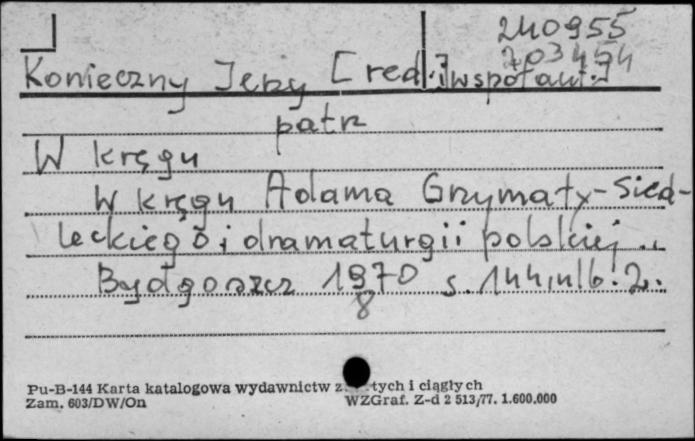 240955
203454
Konieczny Jerzy [red. i współaut.]
patrz
W kręgu
W kręgu Adama Grzymały-Sied-
leckiego i dramaturgii polskiej ..
Bydgoszcz 1970 s. 144, nlb. 2.
8
Pu-B-144 Karta katalogowa wydawnictw tych i ciągłych
Zam. 603/DW/On WZGraf. Z-d 2 513/77. 1.600.000